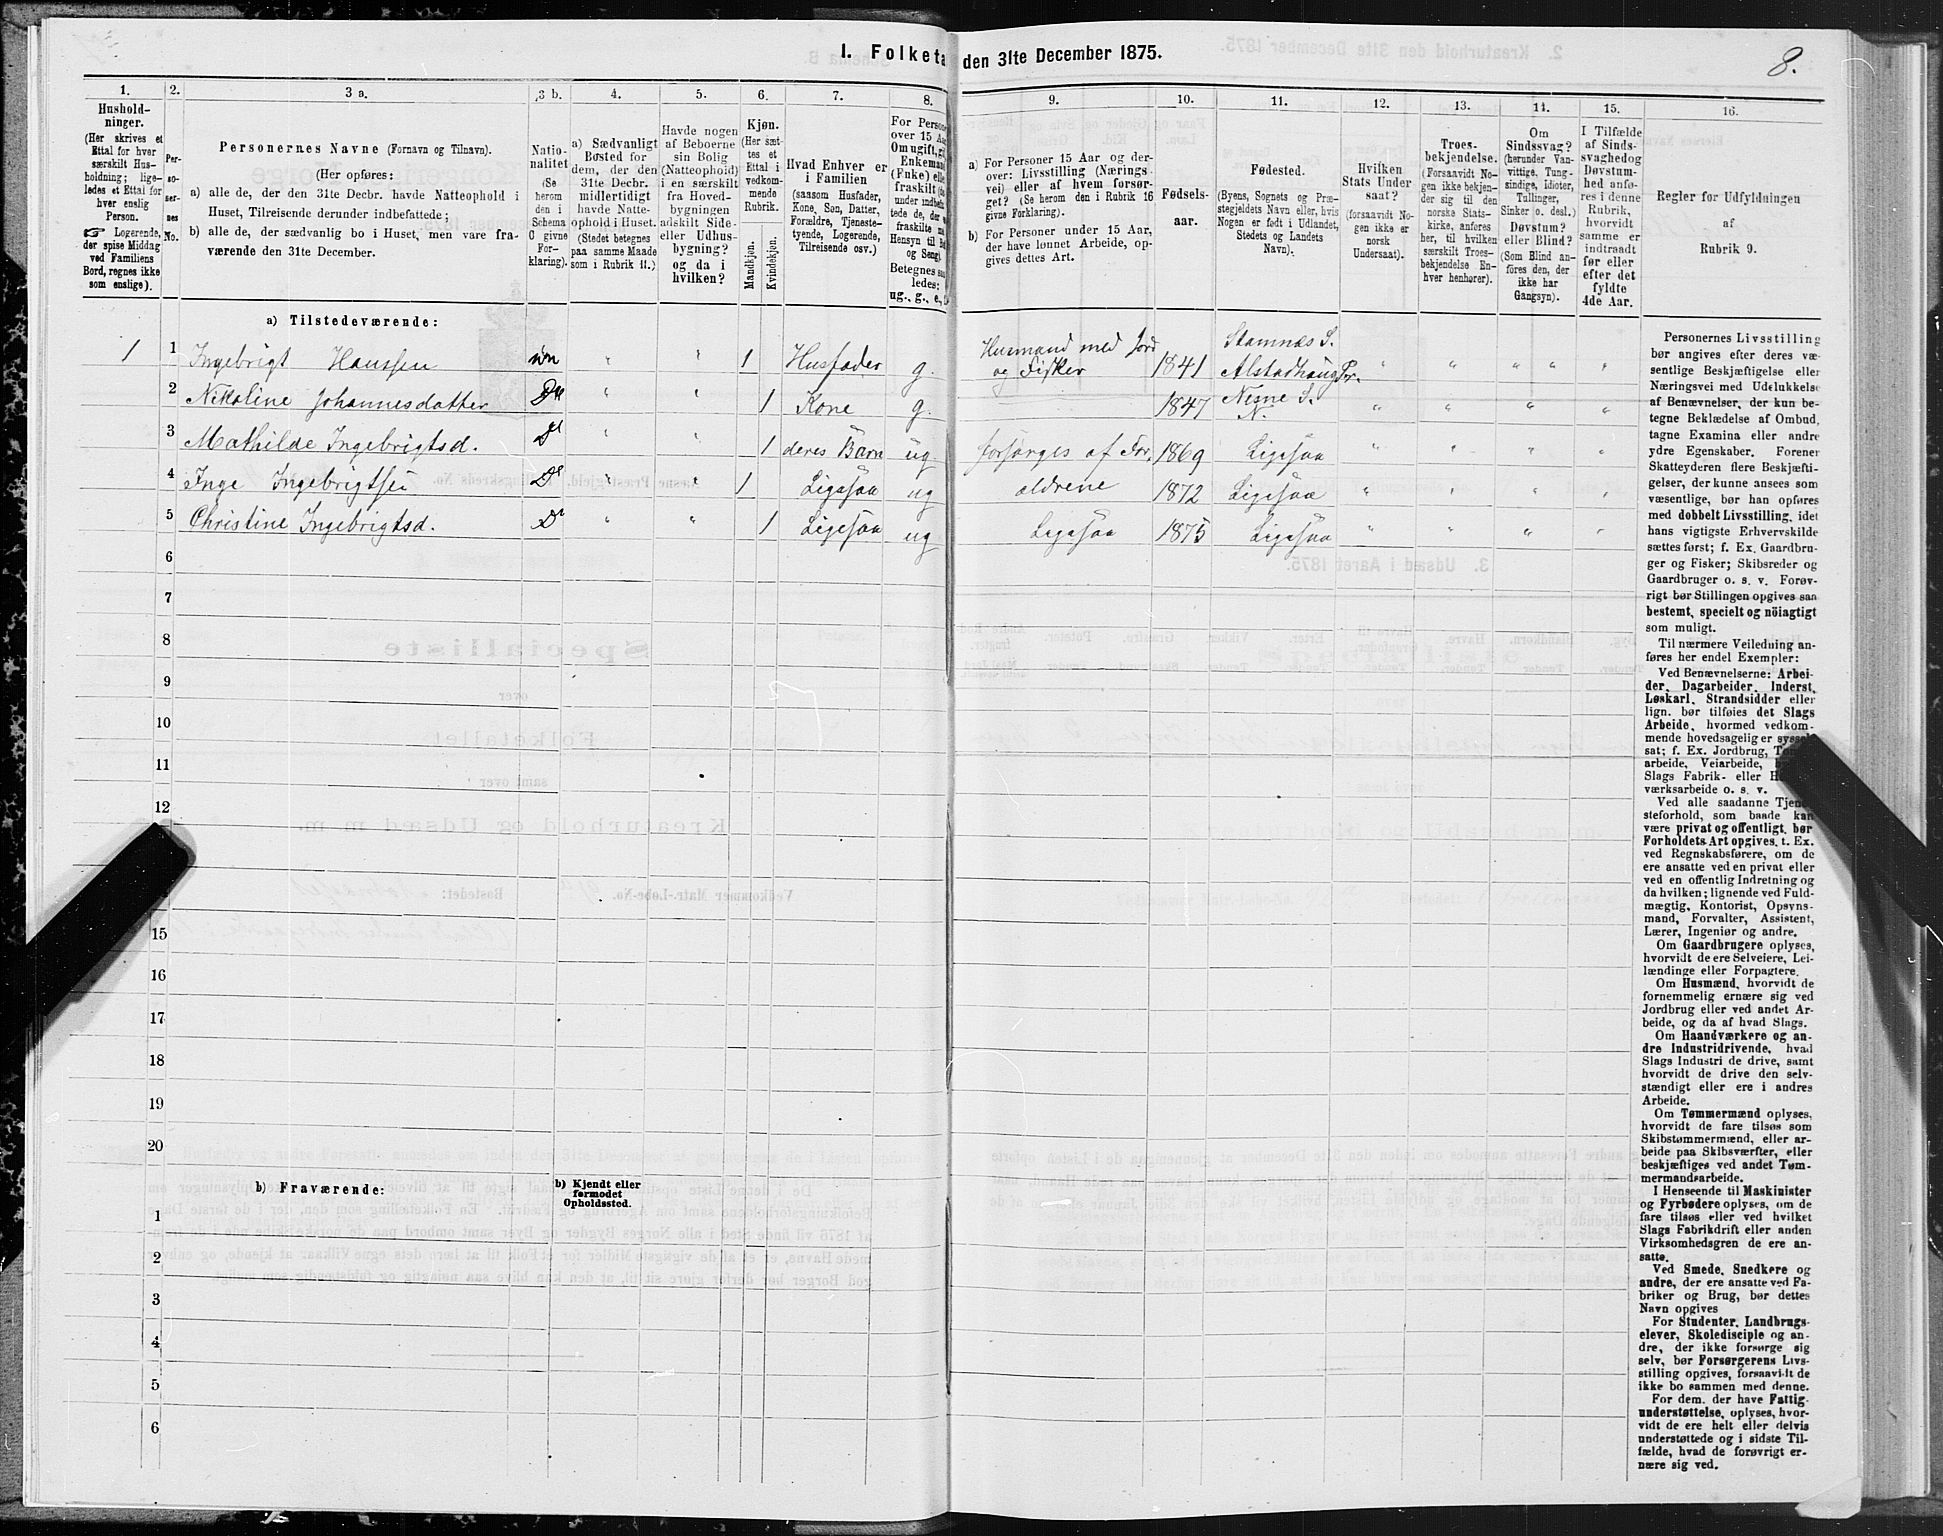 I. Folketa
den 31te December 1875.
8.
1.
Hushold-
ninger.
(Her skrives et
Ettal for hver
særskilt Hus-
holdning; lige-
ledes et Ettal for
hver enslig
Person.
☞ Logerende,
der spise Middag
ved Familiens
Bord, regnes ikke
som enslige).
2.
Per-
so-
ner-
nes
No.
3 a.
Personernes Navne (Fornavn og Tilnavn).
(Her opføres:
a) alle de, der den 31te Decbr. havde Natteophold i
Huset, Tilreisende derunder indbefattede;
b) alle de, der sædvanlig bo i Huset, men vare fra-
værende den 31te December.
3 b.
Natio-
nalitet
(Se
herom
den i
Schema
O givne
For-
klaring).
4.
a) Sædvanligt
Bosted for
dem, der den
31te Decbr.
midlertidigt
havde Natte-
ophold i Huset.
(Stedet betegnes
paa samme Maade
som i Rubrik 11.)
5.
Havde nogen
af Beboerne
sin Bolig
(Natteophold)
i en særskilt
fra Hoved-
bygningen
adskilt Side-
eller Udhus-
bygning?
og da i
hvilken?
6.
Kjøn.
(Her sæt-
tes et
Ettal i
vedkom-
mende
Rubrik.
Mandkjøn.
Kvindekjøn.
7.
Hvad Enhver er
i Familien
(saasom Husfader,
Kone, Søn, Datter,
Forældre, Tjeneste-
tyende, Logerende,
Tilreisende osv.)
8.
For Persone
over 15 Aar
Om ugift, gi
Enkeman
(Enke) elle
fraskilt
Betegnes saa
ledes:
ug., g., e.,
9.
a) For Personer 15 Aar og der-
over: Livsstilling (Nærings
vei) eller af hvem forsør-
get? (Se herom i Rubrik 16
givne Forklaring).
b) For Personer under 15 Aar,
der have lønnet Arbeide, op-
gives dettes Art.
10.
Fødsels-
aar.
11.
Fødested.
(Byens, Sognets og Præ-
stegjeldets Navn eller, hvis
Nogen er født i Udlandet,
Stedets og Landets
Navn).
12.
Hvilken
Stats Under
saat?
(forsaavidt No-
gen ikke er
norsk
Undersaat).
13.
Troes-
bekjendelse.
(Forsaavidt No-
gen ikke bekjen-
der sig til den
norske Stats-
kirke, anføres
her, til hvilken
særskilt Troes-
bekjendelse En-
hver henhører).
14.
Om
Sindssvag?
(herunder Van-
vittige, Tung-
sindige, Idioter,
Tullinger,
Sinker o. desl.)
Døvstum?
eller Blind?
(Som Blind an-
føres den, der
ikke har
Gangsyn).
15.
I Tilfælde
af Sinds-
svaghed og
Døvstum-
hed anfø-
res i denne
Rubrik,
hvorvidt
samme er
indtraadt
før eller
efter det
fyldte
4de Aar.
16.
Regler for Udfyldningen
af
Rubrik 9.
a) Tilstedeværende:
1 1 Ingebrigt Hanssen nn " " 1 Husfader g. Husmand med Jord og Fisker 1841 Stamnæs S. Alstadhaug Pr. " " " " "
2 Nikoline Johannesdatter Do " " 1 Kone g. 1847 Nesne S. N. " " " "
3 Mathilde Ingebrigtsd. Do " " 1 deres Barn ug. forsørges af For- 1869 Ligesaa " " " "
4 Inge Ingebrigtsen Do " " 1 Ligesaa ug ældrene 1872 Ligesaa " " " "
5 Christine Ingebrigtsd. Do " " 1 Ligesaa ug Ligesaa 1875 Ligesaa " " " "
6
7
8
9
10
11
12
15
16
17
18
19
20
b) Fraværende:
b) Kjendt eller
formodet
Opholdssted.
1
2
3
4
5
6
Personernes Livsstilling
bør angives efter deres væ-
sentlige Beskjæftigelse eller
Næringsvei med Udelukkelse
af Benævnelser, der kun be-
tegne Beklædelse af Ombud,
tagne Examina eller andre
ydre Egenskaber. Forener
Skatteyderen flere Beskjæfti-
gelser, der kunne ansees som
væsentlige, bør han opføres
med dobbelt Livsstilling, idet
hans vigtigste Erhvervskilde
sættes først; f. Ex. Gaardbru-
ger og Fisker; Skibsreder og
Gaardbruger o. s. v. Forøv-
rigt bør Stillingen opgives saa
bestemt, specielt og nöiagtigt
som muligt.
Til nærmere Veiledning an-
føres her endel Exempler:
Ved Benævnelserne: Arbei-
der, Dagarbeider, Inderst,
Løskarl, Strandsidder eller
lign. bør tilføies det Slags
Arbeide, hvormed vedkom-
mende hovedsagelig er syssel-
sat; f. Ex. Jordbrug,
arbeide, Veiarbeide,
Slags Fabrik- eller
værksarbeide o. s. v.
Ved alle saadanne Tjene-
steforhold, som baade kan
være privat og offentligt, bør
Forholdets Art opgives, t. Ex.
ved Regnskabsførere, om de
ere ansatte ved en privat eller
ved en offentlig Indretning og
da hvilken; lignende ved Fuld-
mægtig, Kontorist, Opsyns-
mand, Forvalter, Assistent,
Lærer, Ingeniør og andre.
Om Gaardbrugere oplyses,
hvorvidt de ere Selveiere, Lei-
lændinge eller Forpagtere.
Om Husmænd, hvorvidt de
fornemmelig ernære sig ved
Jordbrug eller ved andet Ar-
beide, og da af hvad Slags.
Om Haandværkere og an-
dre Industridrivende, hvad
Slags Industri de drive, samt
hvorvidt de drive den selv-
stændigt eller ere i andres
Arbeide.
Om Tømmermænd oplyses,
hvorvidt de fare tilsøs som
Skibstømmermænd, eller ar-
beide paa Skibsværfter, eller
beskjæftiges ved andet Tøm-
mermandsarbeide.
I Henseende til Maskinister
og Fyrbødere oplyses, om de
fare tilsøs eller ved hvilket
Slags Fabrikdrift eller anden
Virksomhedsgren de ere an-
satte.
Ved Smede, Snedkere og
andre, der ere ansatte ved Fa-
briker og Brug, bør dettes
Navn opgives
For Studenter, Landbrugs-
elever, Skoledisciple og an-
dre, der ikke forsørge sig
selv, bør Forsørgerens Livs-
stilling opgives, forsaavidt de
ikke bo sammen med denne.
For dem, der have Fattig-
understøttelse, oplyses, hvor-
vidt de ere helt eller delvis
understøttede og i sidste Til-
fælde, hvad de forøvrigt er-
nære sig ved.